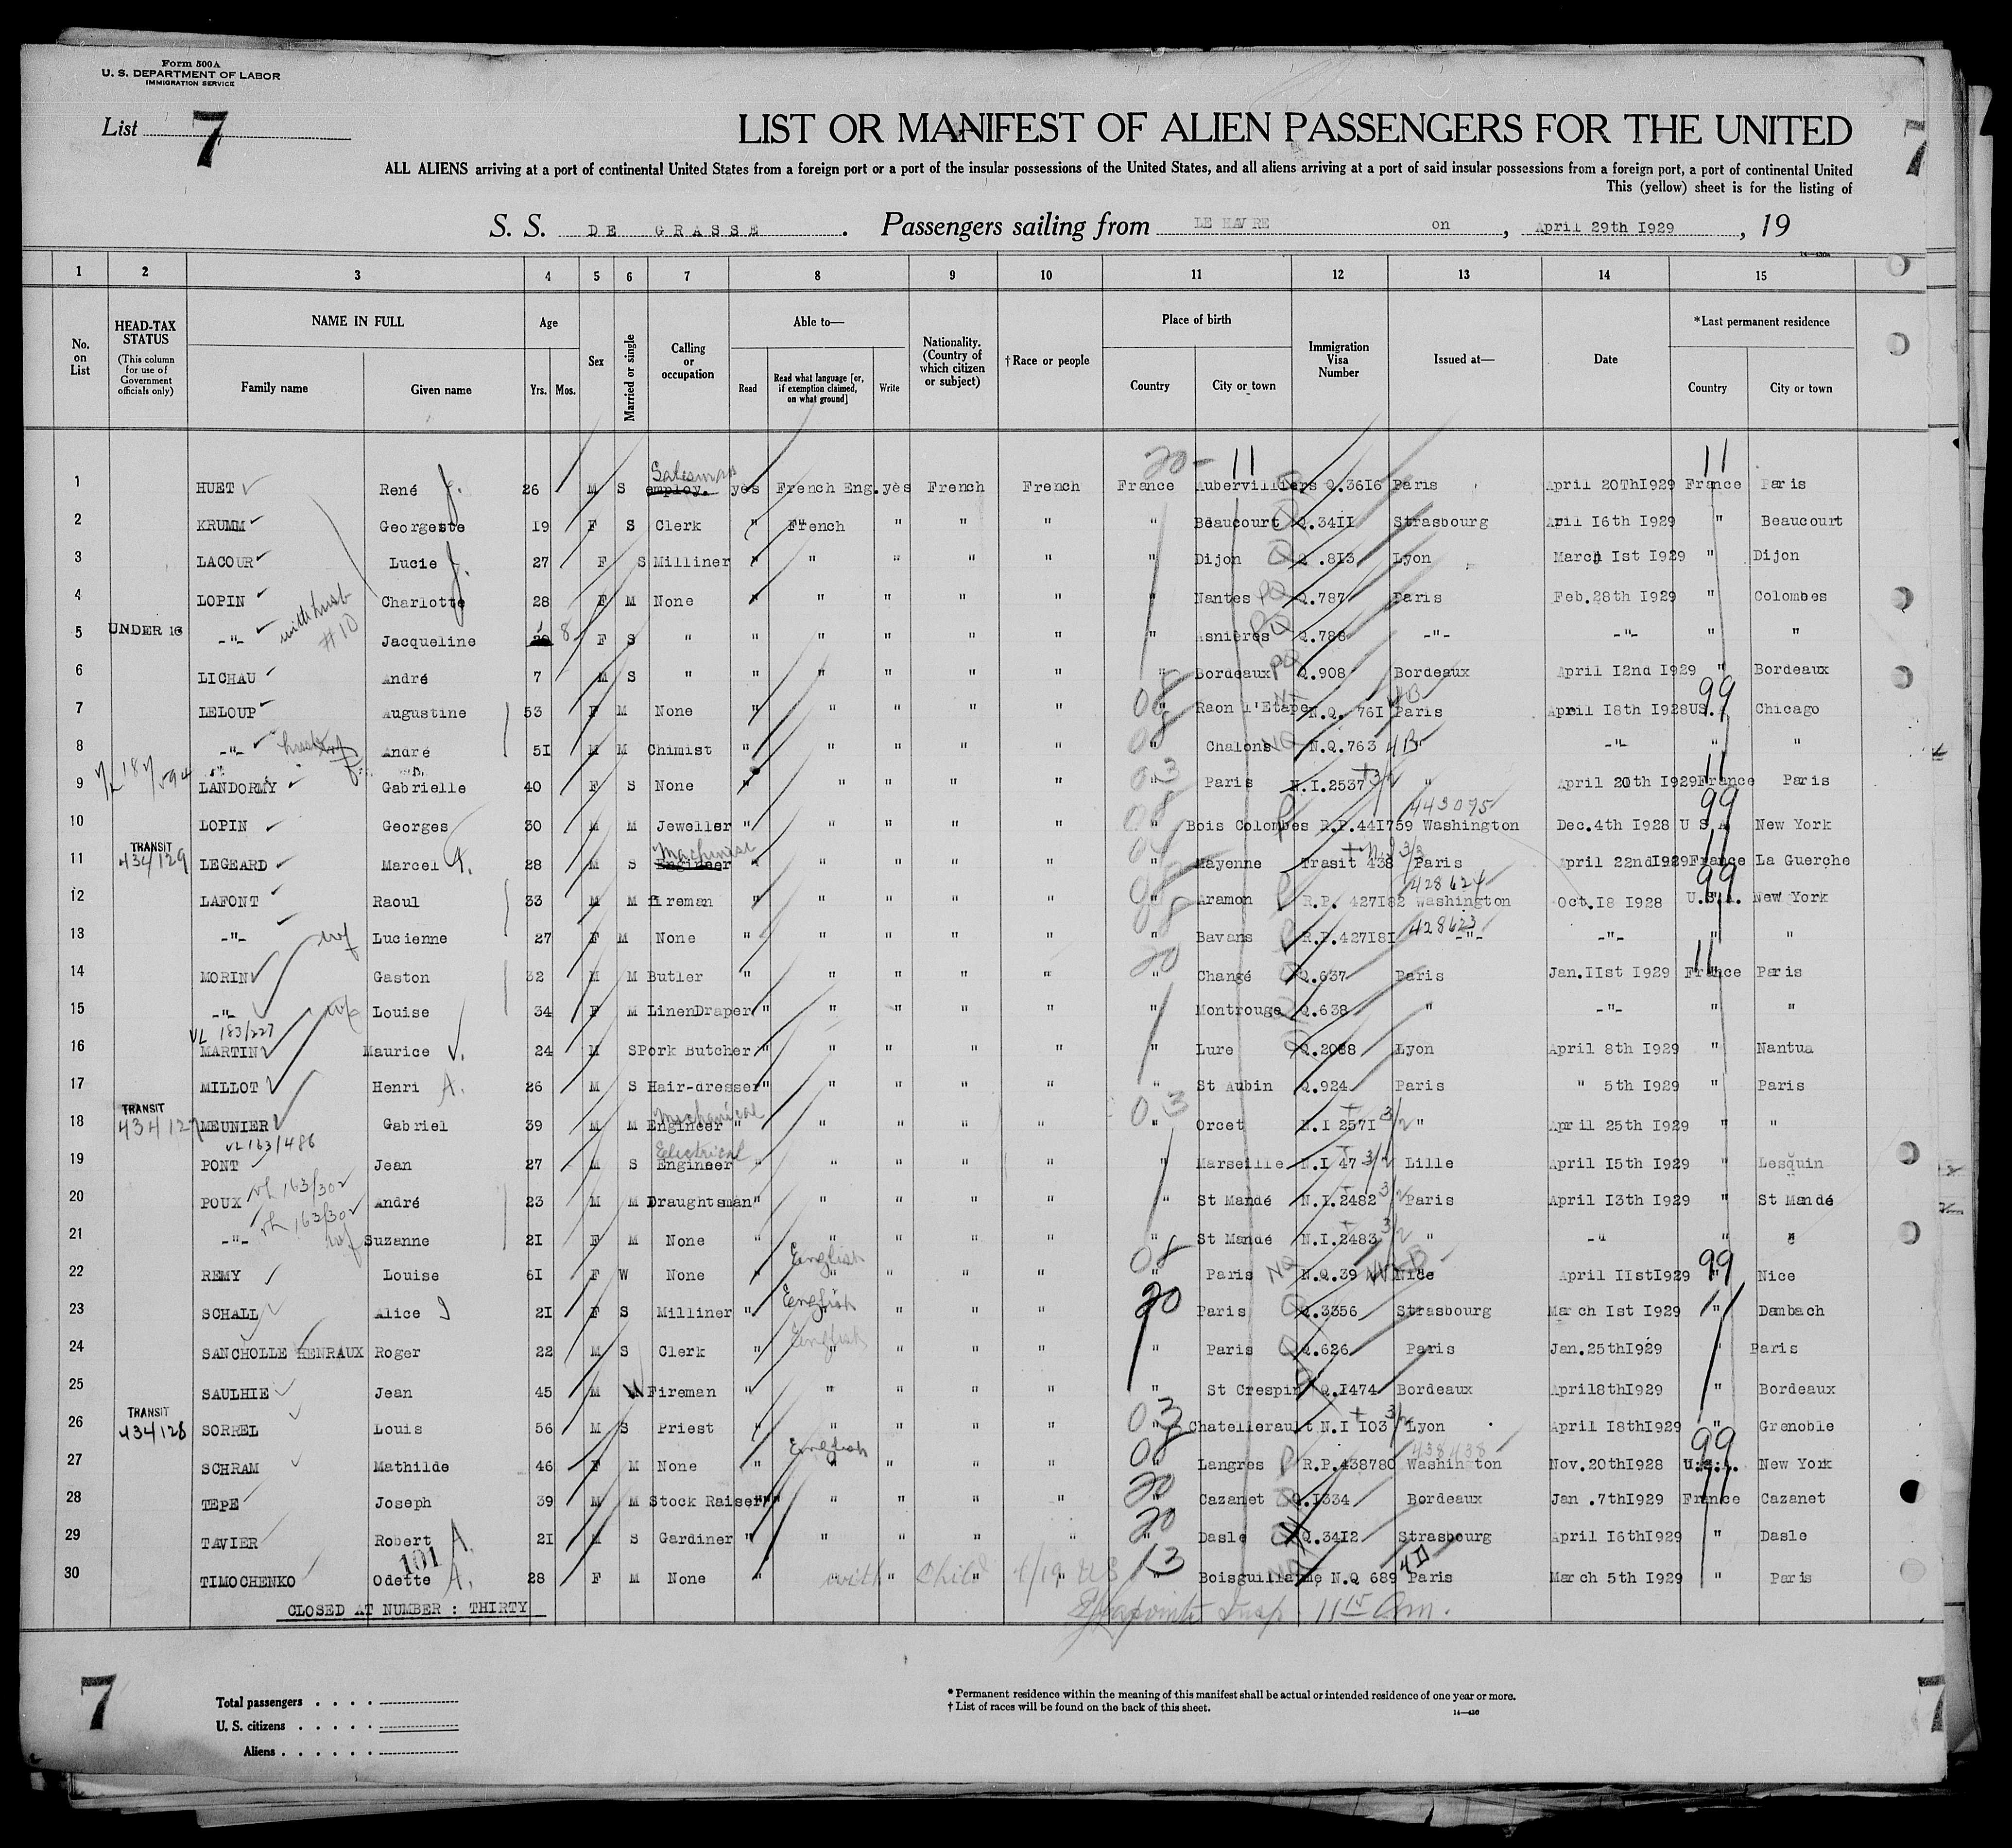 Form 500A
U. S. DEPARTMENT OF LABOR
IMMIGRATION SERVICE
List 7
LIST OR MANIFEST OF ALIEN PASSENGERS FOR THE UNITED
7
ALL ALIENS arriving at a port of continental United States from a foreign port or a port of the insular possessions of the United States, and all aliens arriving at a port of said insular possessions from a foreign port, a port of continental United
This (yellow) sheet is for the listing of
S. S. DE GRASSE . Passengers sailing from LE HAVRE on , April 29th 1929 , 19
1 2 3 4 5 6 7 8 9 10 11 12 13 14 15
No. on List
HEAD-TAX STATUS (This column for use of Government officials only)
NAME IN FULL Family name Given name
Age Yrs. Mos.
Sex
Married or single
Calling or occupation
Able to— Read Read what language [or, if exemption claimed, on what ground] Write
Nationality. (Country of which citizen or subject)
†Race or people
Place of birth Country City or town
Immigration Visa Number
Issued at—
Date
*Last permanent residence Country City or town
20- 11 11
Salesman
1 HUET René J. 26 M S employ. yès French Eng. yès French French France Aubervilliers Q.36I6 Paris April 20ThI929 France Paris
2 KRUMM Georgeste 19 F S Clerk " French " " " " Beaucourt Q.34II Strasbourg Aril I6th I929 " Beaucourt
3 LACOUR Lucie J. 27 F S Milliner " " " " " " Dijon Q .8I3 Lyon March Ist I929 " Dijon
4 LOPIN Charlotte 28 F M None " " " " " " Nantes PQ Q.787 Paris Feb.28th I929 " Colombes
with husb # 10
5 UNDER 16 -"- Jacqueline 8 F S " " " " " " " Asnières Q.788 -"- -"- " "
6 LICHAU André 7 M S " " " " " " " Bordeaux PQ Q.908 Bordeaux April I2nd I929 " Bordeaux
08 99
7 LELOUP Augustine 53 F M None " " " " " " Raon l'Etape N.Q. 76I 4B Paris April I8th I928 US.A Chicago
8 -"- André 5I M M Chimist " " " " " " Chalons NQ N.Q.763 4B " -"- " "
03 11
9 LANDORMY Gabrielle 40 F S None " " " " " " Paris N.I.2537 3/2 " April 20th I929 France Paris
08 443075 99
10 LOPIN Georges 30 M M Jeweller " " " " " " Bois Colombes R.P.44I759 Washington Dec.4th I928 U S A New York
TRANSIT 434/129 Machinist 04 3/3
11 LEGEARD Marcel 28 M S Engineer " " " " " " Mayenne Trasit 438 Paris April 22nd I929 France La Guerche
08 428624 99
12 LAFONT Raoul 33 M M fireman " " " " " " Aramon R.P. 427I82 Washington Oct.I8 I928 U.S.A. New York
08 428623
13 -"- wf Lucienne 27 F M None " " " " " " Bavans R.P.427I8I -"- -"- " "
20 11
14 MORIN Gaston 32 M M Butler " " " " " " Changé Q.637 Paris Jan.IIst I929 France Paris
15 -"- wf Louise 34 F M LinenDraper " " " " " " Montrouge Q.638 " -"- " "
VL 183/227
16 MARTIN Maurice V. 24 M S Pork Butcher " " " " " " Lure Q.2088 Lyon April 8th I929 " Nantua
17 MILLOT Henri A. 26 M S Hair-dresser " " " " " " St Aubin Q.924 Paris " 5th I929 " Paris
TRANSIT 434/127 Mechanical 03
18 MEUNIER Gabriel 39 M M Engineer " " " " " " Orcet N.I 257I 3/2 " April 25th I929 " "
VL 163/486 Electrical
19 PONT Jean 27 M S Engineer " " " " " " Marseille N.I 47 3/2 Lille April I5th I929 " Lesquin
VL 163/302
20 POUX André 23 M M Draughtsman " " " " " " St Mandé N.I.2482 3/2 Paris April I3th I929 " St Mandé
VL 163/302
21 -"- wf Suzanne 2I F M None " " " " " " St Mandé N.I.2483 3/2 " -" " "
English 08 99
22 REMY Louise 6I F W None " " " " " " Paris NQ N.Q.39 Nice April IIstI929 " Nice
English 20 11
23 SCHALL Alice J 2I F S Milliner " " " " " " Paris Q.3356 Strasbourg March Ist I929 " Dambach
English
24 SANCHOLLE HENRAUX Roger 22 M S Clerk " " " " " " Paris Q.626 Paris Jan.25thI929 " Paris
25 SAULHIE Jean 45 M M Fireman " " " " " " St Crespin Q.I474 Bordeaux April8thI929 " Bordeaux
TRANSIT 434/128 03
26 SORREL Louis 56 M S Priest " " " " " " Chatellerault N.I I03 3/2 Lyon April I8thI929 " Grenoble
English 08 438438 99
27 SCHRAM Mathilde 46 F M None " " " " " " Langres R.P.438780 Washington Nov.20thI928 U.S.A. New York
20
28 TEPE Joseph 39 M M Stock Raiser " " " " " " Cazanet Q.I334 Bordeaux Jan .7thI929 France Cazanet
20
29 TAVIER Robert A. 2I M S Gardiner " " " " " " Dasle Q.34I2 Strasbourg April I6thI929 " Dasle
101 13 4D
30 TIMOCHENKO Odette A. 28 F M None " " " " " " Boisguillaume N.Q 689 Paris March 5th I929 " Paris
with Child
CLOSED AT NUMBER : THIRTY
Insp. 11 15 Am.
7
7
Total passengers . . . .
U. S. citizens . . . . .
Aliens . . . . . .
* Permanent residence within the meaning of this manifest shall be actual or intended residence of one year or more.
† List of races will be found on the back of this sheet.
14—430